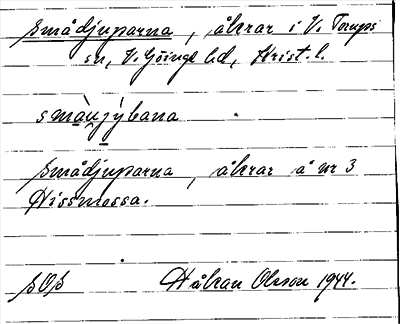 Smådjuparna, åkrar i V. Torups
sn, V. Göinge hd, Krist. l.
småu̯jýbana
Smådjuparna, åkrar å nr 3
Hissmossa.
SOS Håkan Olsson 1944.